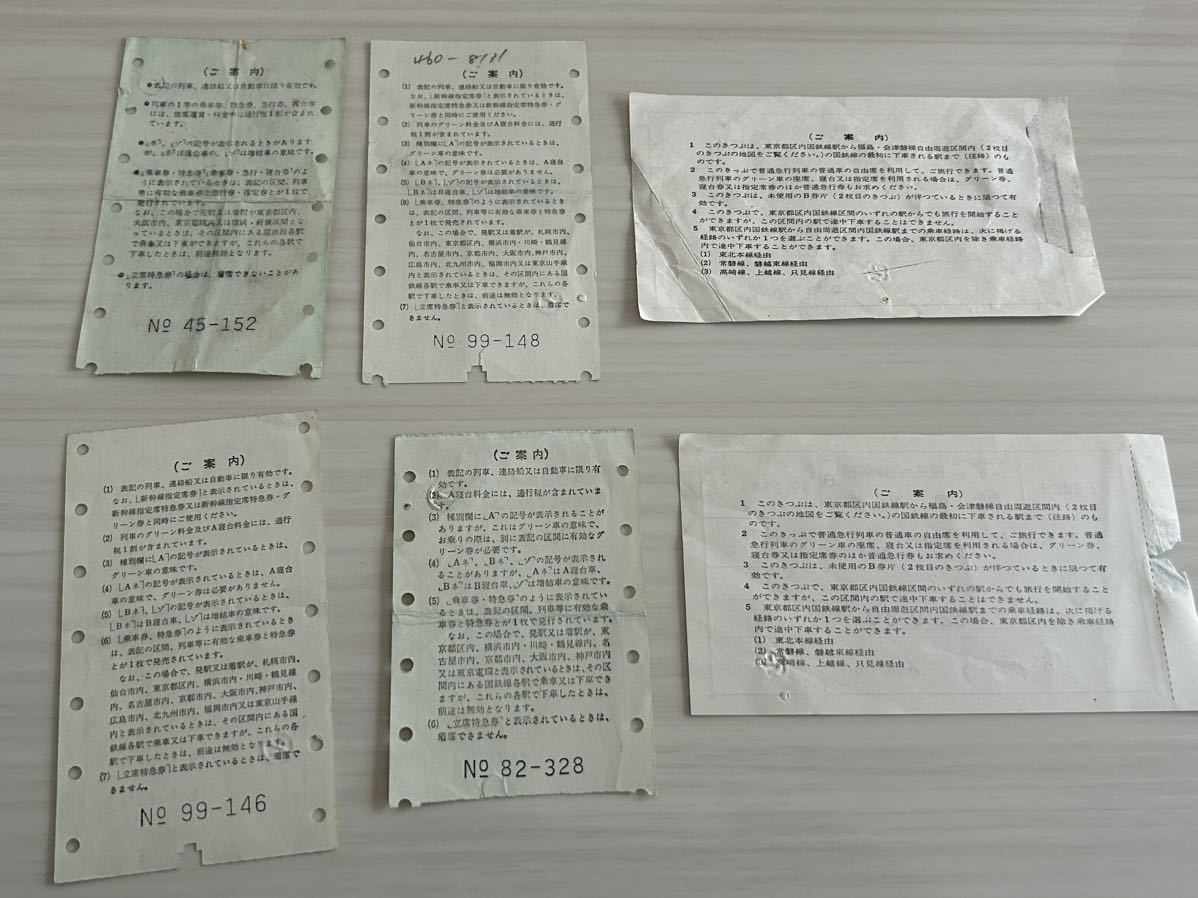 (ご案内)
●表記の列車、連絡船又は自動車に限り有効です。
●列車の1等の乗車券、特急券、急行券、寝台券
には、旅客運賃・料金中に通行税1割が含まれ
ています。
の記号が表示されるときがあります
が、
は寝台車の、
は増結車の意味です。
●「乗車券・特急券」「乗車券・急行・寝台券」のよ
うに表示されているときは、表記の区間、列車
等に有効な乗車券と急行券・指定券とが1枚で
発行されています。
なお、この場合で発駅又は着駅が東京都区内、
大阪市内、東京電環内又は横浜・新横浜間とな
っているときは、その区間内にある国鉄線各駅で
乗車又は下車ができますが、これらの各駅で
下車したときは、前途無効となります。
●「立席特急券」の場合は、着席できないことがあ
ります。
№ 45-152
460-8731
(ご案内)
(1) 表記の列車、連絡船又は自動車に限り有効です。
なお、「新幹線指定席券」と表示されているときは、
新幹線指定席特急券又は新幹線指定席特急券・グ
リーン券と同時にご使用ください。
(2) 列車のグリーン料金及びA寝台料金には、通行
税1割が含まれています。
(3) 種別欄に「A」の記号が表示されているときは、
グリーン車の意味です。
(4) 「Aネ」の記号が表示されているときは、A寝台
車の意味で、グリーン券は必要がありません。
(5) 「Bネ」、「ゾ」の記号が表示されているときは、
「Bネ」はB寝台車、「ゾ」は増結車の意味です。
(6) 「乗車券、特急券」のように表示されているとき
は、表記の区間、列車等に有効な乗車券と特急券
とが1枚で発売されています。
なお、この場合で、発駅又は着駅が、札幌市内、
仙台市内、東京都区内、横浜市内・川崎・鶴見線
内、名古屋市内、京都市内、大阪市内、神戸市内、
広島市内、北九州市内、福岡市内又は東京山手線
内と表示されているときは、その区間内にある国
鉄線各駅で乗車又は下車できますが、これらの各
駅で下車したときは、前途は無効となります。
(7) 「立席特急券」と表示されているときは、着席で
きません。
№ 99-148
(ご案内)
1 このきっぷは、東京都区内国鉄線駅から福島・会津磐梯自由周遊区間内(2枚目
のきっぷの地図をご覧ください。)の国鉄線の最初に下車される駅まで(往路)のも
のです。
2 このきっぷで普通急行列車の普通車の自由席を利用して、ご旅行できます。普通
急行列車のグリーン車の座席、寝台又は指定席を利用される場合は、グリーン券、
寝台券又は指定席券のほか普通急行券もお求めください。
3 このきっぷは、未使用のB券片(2枚目のきっぷ)が伴っているときに限って有
効です。
4 このきっぷで、東京都区内国鉄線区間のいずれの駅からでも旅行を開始すること
ができますが、この区間内の駅で途中下車することはできません。
5 東京都区内国鉄線駅から自由周遊区間内国鉄線駅までの乗車経路は、次に掲げる
経路のいずれか1つを選ぶことができます。この場合、東京都区内を除き乗車経路
内で途中下車することができます。
(1) 東北本線経由
(2) 常磐線、磐越東線経由
(3) 高崎線、上越線、只見線経由
(ご案内)
(1) 表記の列車、連絡船又は自動車に限り有効です。
なお、「新幹線指定席券」と表示されているときは、
新幹線指定席特急券又は新幹線指定席特急券・グ
リーン券と同時にご使用ください。
(2) 列車のグリーン料金及びA寝台料金には、通行
税1割が含まれています。
(3) 種別欄に「A」の記号が表示されているときは、
グリーン車の意味です。
(4) 「Aネ」の記号が表示されているときは、A寝台
車の意味で、グリーン券は必要がありません。
(5) 「Bネ」、「ゾ」の記号が表示されているときは、
「Bネ」はB寝台車、「ゾ」は増結車の意味です。
(6) 「乗車券、特急券」のように表示されているとき
は、表記の区間、列車等に有効な乗車券と特急券
とが1枚で発売されています。
なお、この場合で、発駅又は着駅が、札幌市内、
仙台市内、東京都区内、横浜市内・川崎・鶴見線
内、名古屋市内、京都市内、大阪市内、神戸市内、
広島市内、北九州市内、福岡市内又は東京山手線
内と表示されているときは、その区間内にある国
鉄線各駅で乗車又は下車できますが、これらの各
駅で下車したときは、前途は無効となります。
(7) 「立席特急券」と表示されているときは、着席で
きません。
№ 99-146
(ご案内)
(1) 表記の列車、連絡船又は自動車に限り有
効です。
(2) A寝台料金には、通行税が含まれていま
す。
(3) 種別欄に「A」の記号が表示されることが
ありますが、これはグリーン車の意味で、
お乗りの際は、別に表記の区間に有効なグ
リーン券が必要です。
(4) 「Aネ」、「Bネ」、「ゾ」の記号が表示され
ることがありますが、「Aネ」はA寝台車、
「Bネ」はB寝台車、「ゾ」は増結車の意味です。
(5) 「乗車券・特急券」のように表示されてい
るときは、表記の区間、列車等に有効な乗
車券と特急券とが1枚で発行されています。
なお、この場合で、発駅又は着駅が、東
京都区内、横浜市内・川崎・鶴見線内、名
古屋市内、京都市内、大阪市内、神戸市内
又は東京電環と表示されているときは、その区
間内にある国鉄線各駅で乗車又は下車でき
ますが、これらの各駅で下車したときは、前
途は無効となります。
(6) 「立席特急券」と表示されているときは、
着席できません。
№ 82-328
(ご案内)
1 このきっぷは、東京都区内国鉄線駅から福島・会津磐梯自由周遊区間内(2枚目
のきっぷの地図をご覧ください。)の国鉄線の最初に下車される駅まで(往路)のも
のです。
2 このきっぷで普通急行列車の普通車の自由席を利用して、ご旅行できます。普通
急行列車のグリーン車の座席、寝台又は指定席を利用される場合は、グリーン券、
寝台券又は指定席券のほか普通急行券もお求めください。
3 このきっぷは、未使用のB券片(2枚目のきっぷ)が伴っているときに限って有
効です。
4 このきっぷで、東京都区内国鉄線区間のいずれの駅からでも旅行を開始すること
ができますが、この区間内の駅で途中下車することはできません。
5 東京都区内国鉄線駅から自由周遊区間内国鉄線駅までの乗車経路は、次に掲げる
経路のいずれか1つを選ぶことができます。この場合、東京都区内を除き乗車経路
内で途中下車することができます。
(1) 東北本線経由
(2) 常磐線、磐越東線経由
(3) 高崎線、上越線、只見線経由